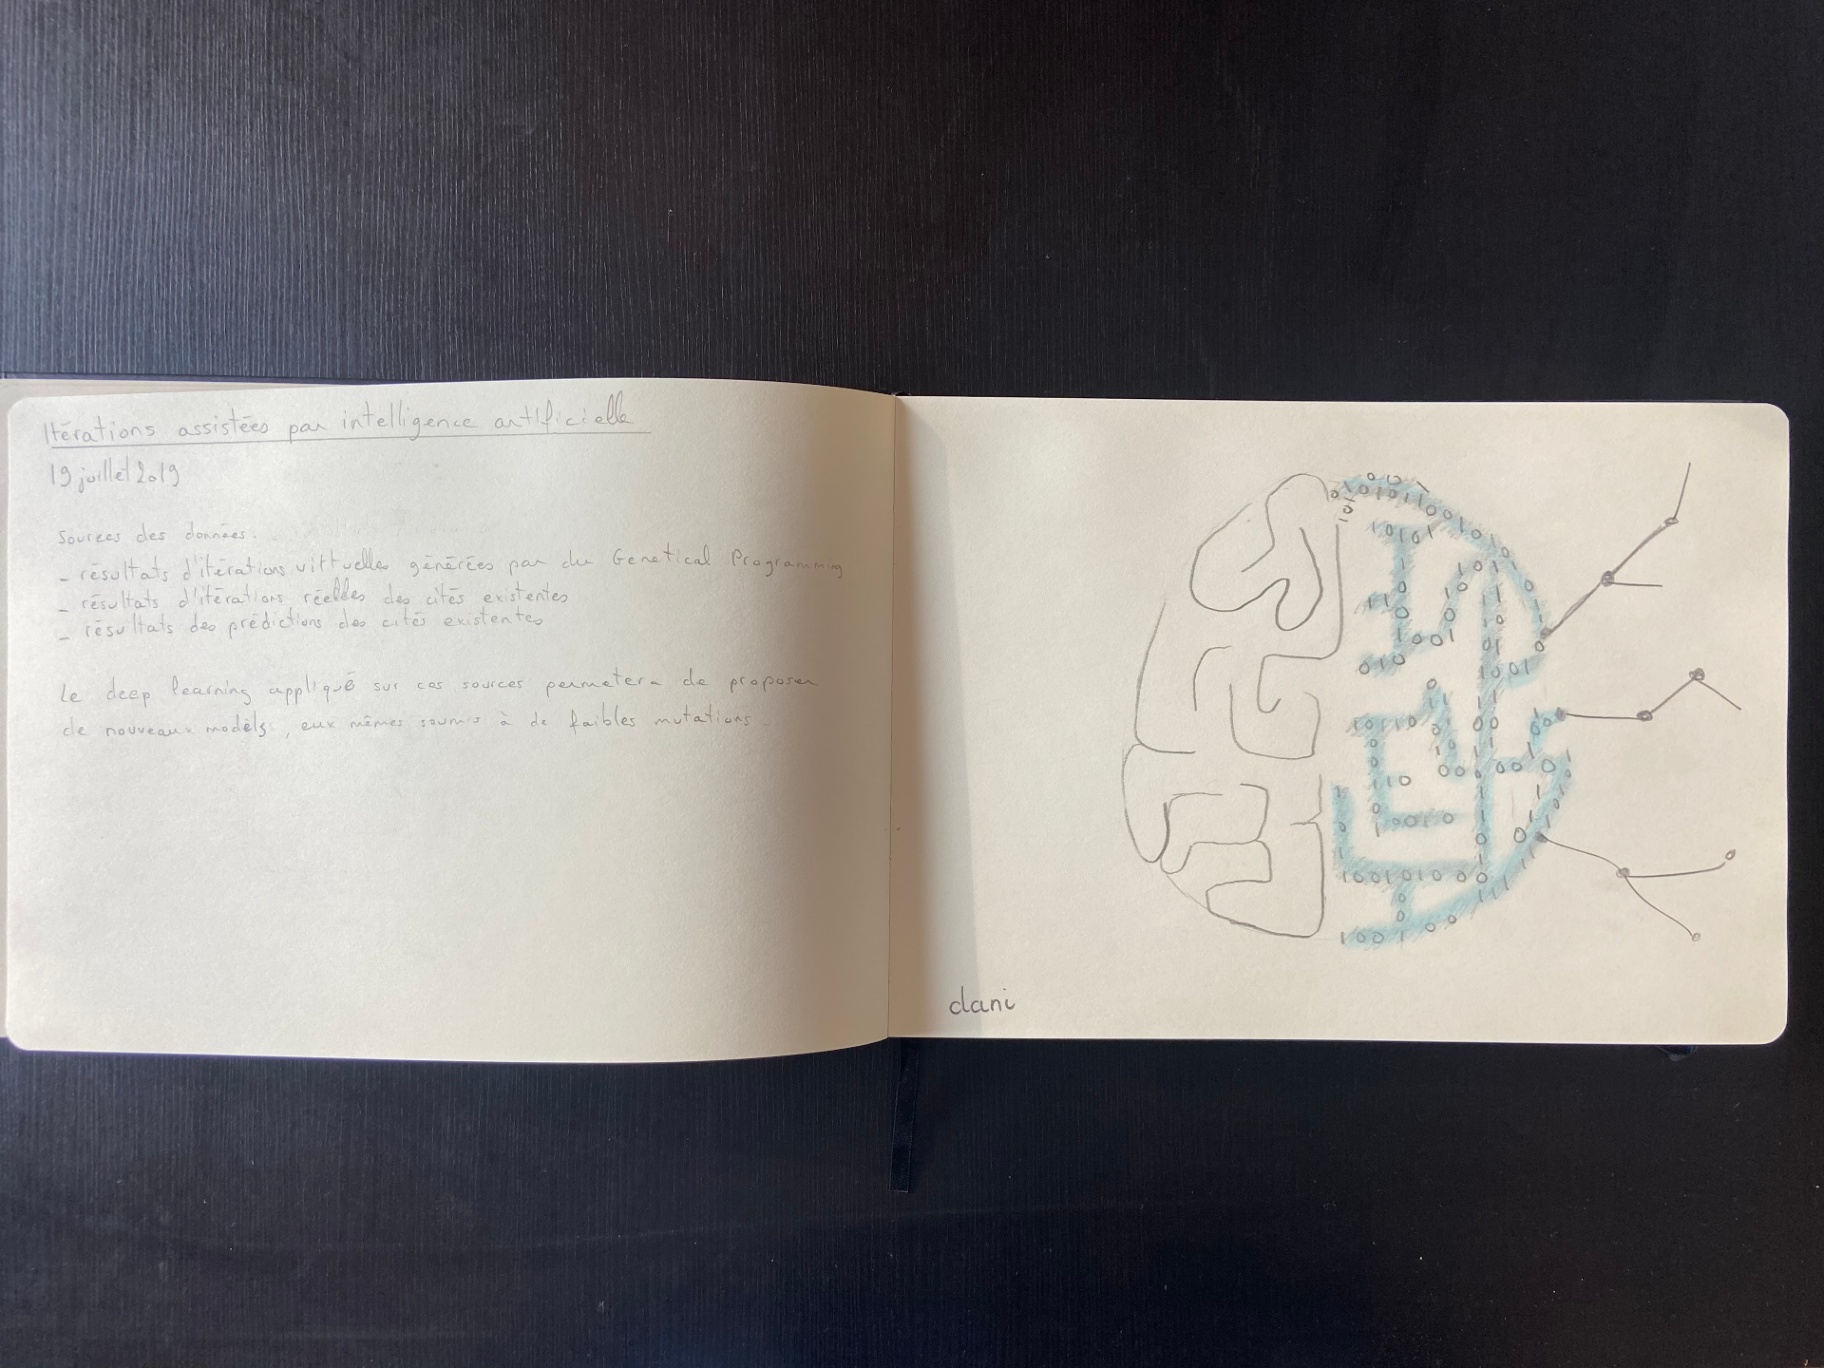 Itérations assistées par intelligence artificielle
19 juillet 2019
Sources des données:
- résultats d'itérations virtuelles générées par du Genetical Programming
- résultats d'itérations réelles des cités existentes
- résultats des prédictions des cités existentes
Le deep learning appliqué sur ces sources permetera de proposer
de nouveaux modèls, eux mêmes soumis à de faibles mutations.
dani